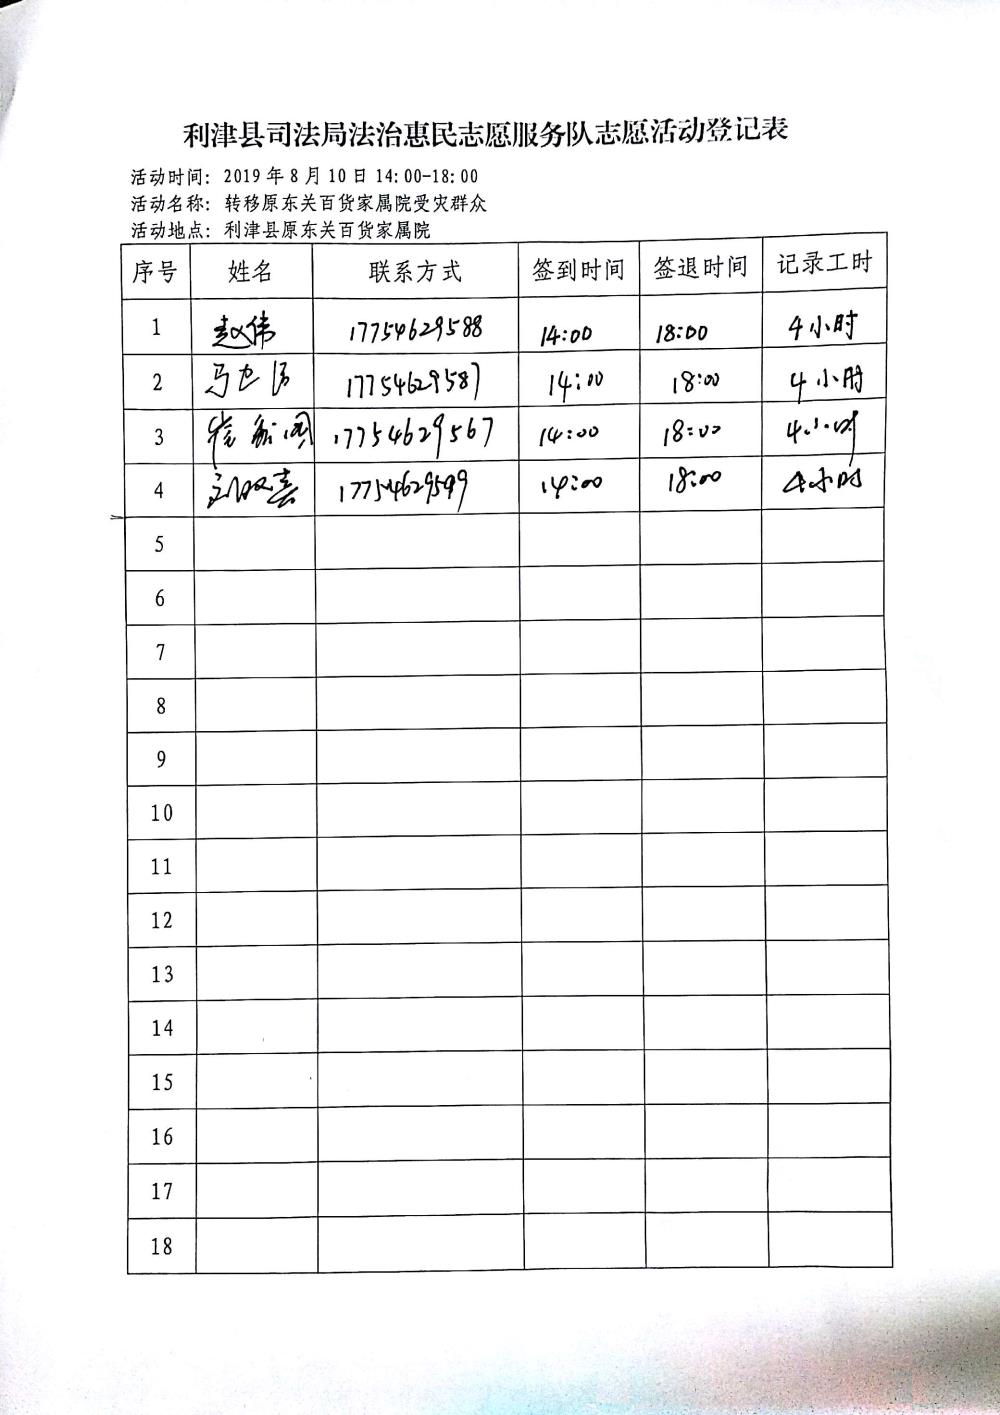 利津县司法局法治惠民志愿服务队志愿活动登记表
活动时间: 2019 年 8 月 10 日 14:00-18:00
活动名称: 转移原东关百货家属院受灾群众
活动地点: 利津县原东关百货家属院
序号 姓名 联系方式 签到时间 签退时间 记录工时
1 赵伟 17754629588 14:00 18:00 4小时
2 17754629587 14:00 18:00 4小时
3 17754629567 14:00 18:00 4小时
4 17754629599 14:00 18:00 4小时
5
6
7
8
9
10
11
12
13
14
15
16
17
18